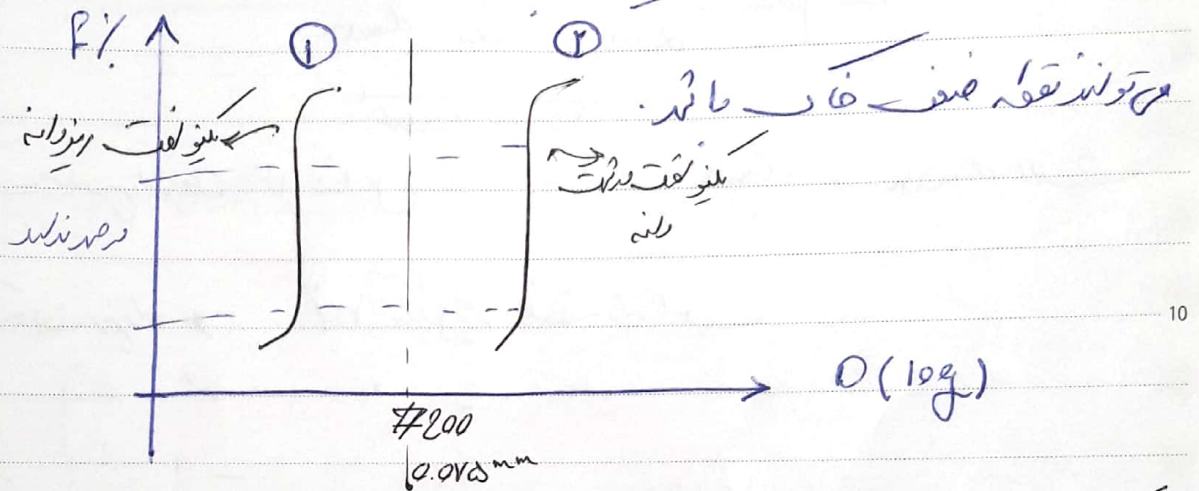 F%
۱
۲
می‌تواند نقطه ضعف خاک باشد.
یکنواخت ریزدانه
یکنواخت درشت
دانه
10
D (log)
#200
0.075 mm